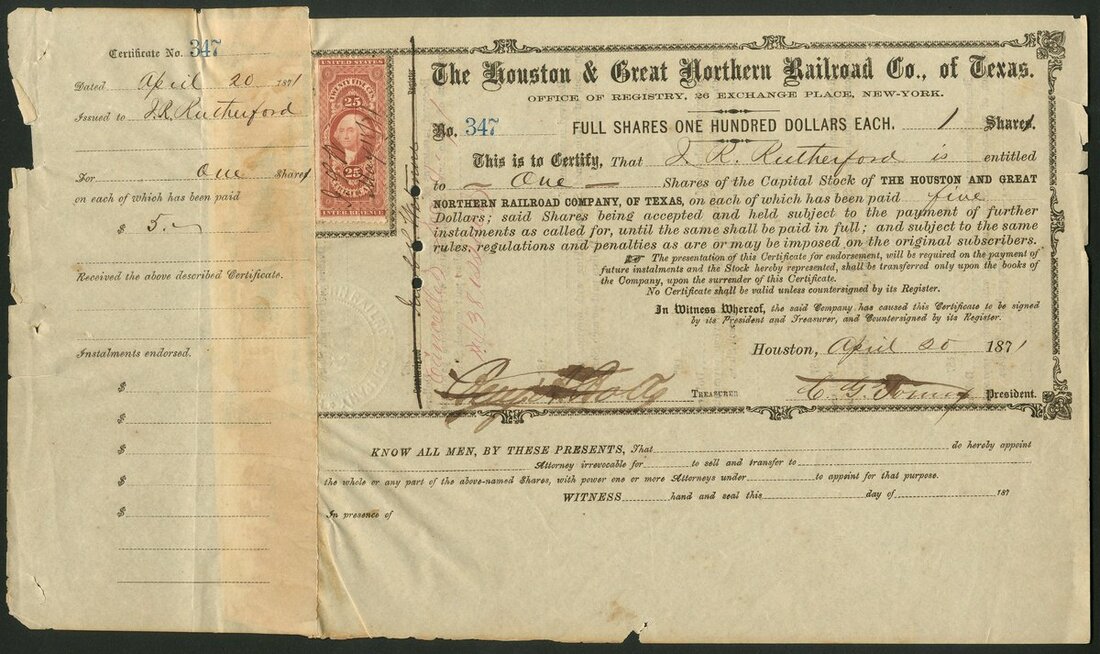 Certificate No. 347
Dated April 20 1871
Issued to J. R. Rutherford
For One Share
on each of which has been paid
$ 5.
Received the above described Certificate.
Instalments endorsed.
$
$
$
$
$
UNITED STATES
TWENTY FIVE CENTS
25
25
INTER. REVENUE
Register
Countersigned
Cancelled
The Houston & Great Northern Railroad Co., of Texas.
OFFICE OF REGISTRY, 26 EXCHANGE PLACE, NEW-YORK.
No. 347 FULL SHARES ONE HUNDRED DOLLARS EACH. 1 Share.
This is to Certify, That J. R. Rutherford is entitled
to One Shares of the Capital Stock of THE HOUSTON AND GREAT
NORTHERN RAILROAD COMPANY, OF TEXAS, on each of which has been paid five
Dollars; said Shares being accepted and held subject to the payment of further
instalments as called for, until the same shall be paid in full; and subject to the same
rules, regulations and penalties as are or may be imposed on the original subscribers.
The presentation of this Certificate for endorsement, will be required on the payment of
future instalments and the Stock hereby represented, shall be transferred only upon the books of
the Company, upon the surrender of this Certificate.
No Certificate shall be valid unless countersigned by its Register.
In Witness Whereof, the said Company has caused this Certificate to be signed
by its President and Treasurer, and Countersigned by its Register.
Houston, April 20 1871
TREASURER C. G. Young President.
KNOW ALL MEN, BY THESE PRESENTS, That do hereby appoint
Attorney irrevocable for to sell and transfer to
the whole or any part of the above-named Shares, with power one or more Attorneys under to appoint for that purpose.
WITNESS hand and seal this day of 187
In presence of